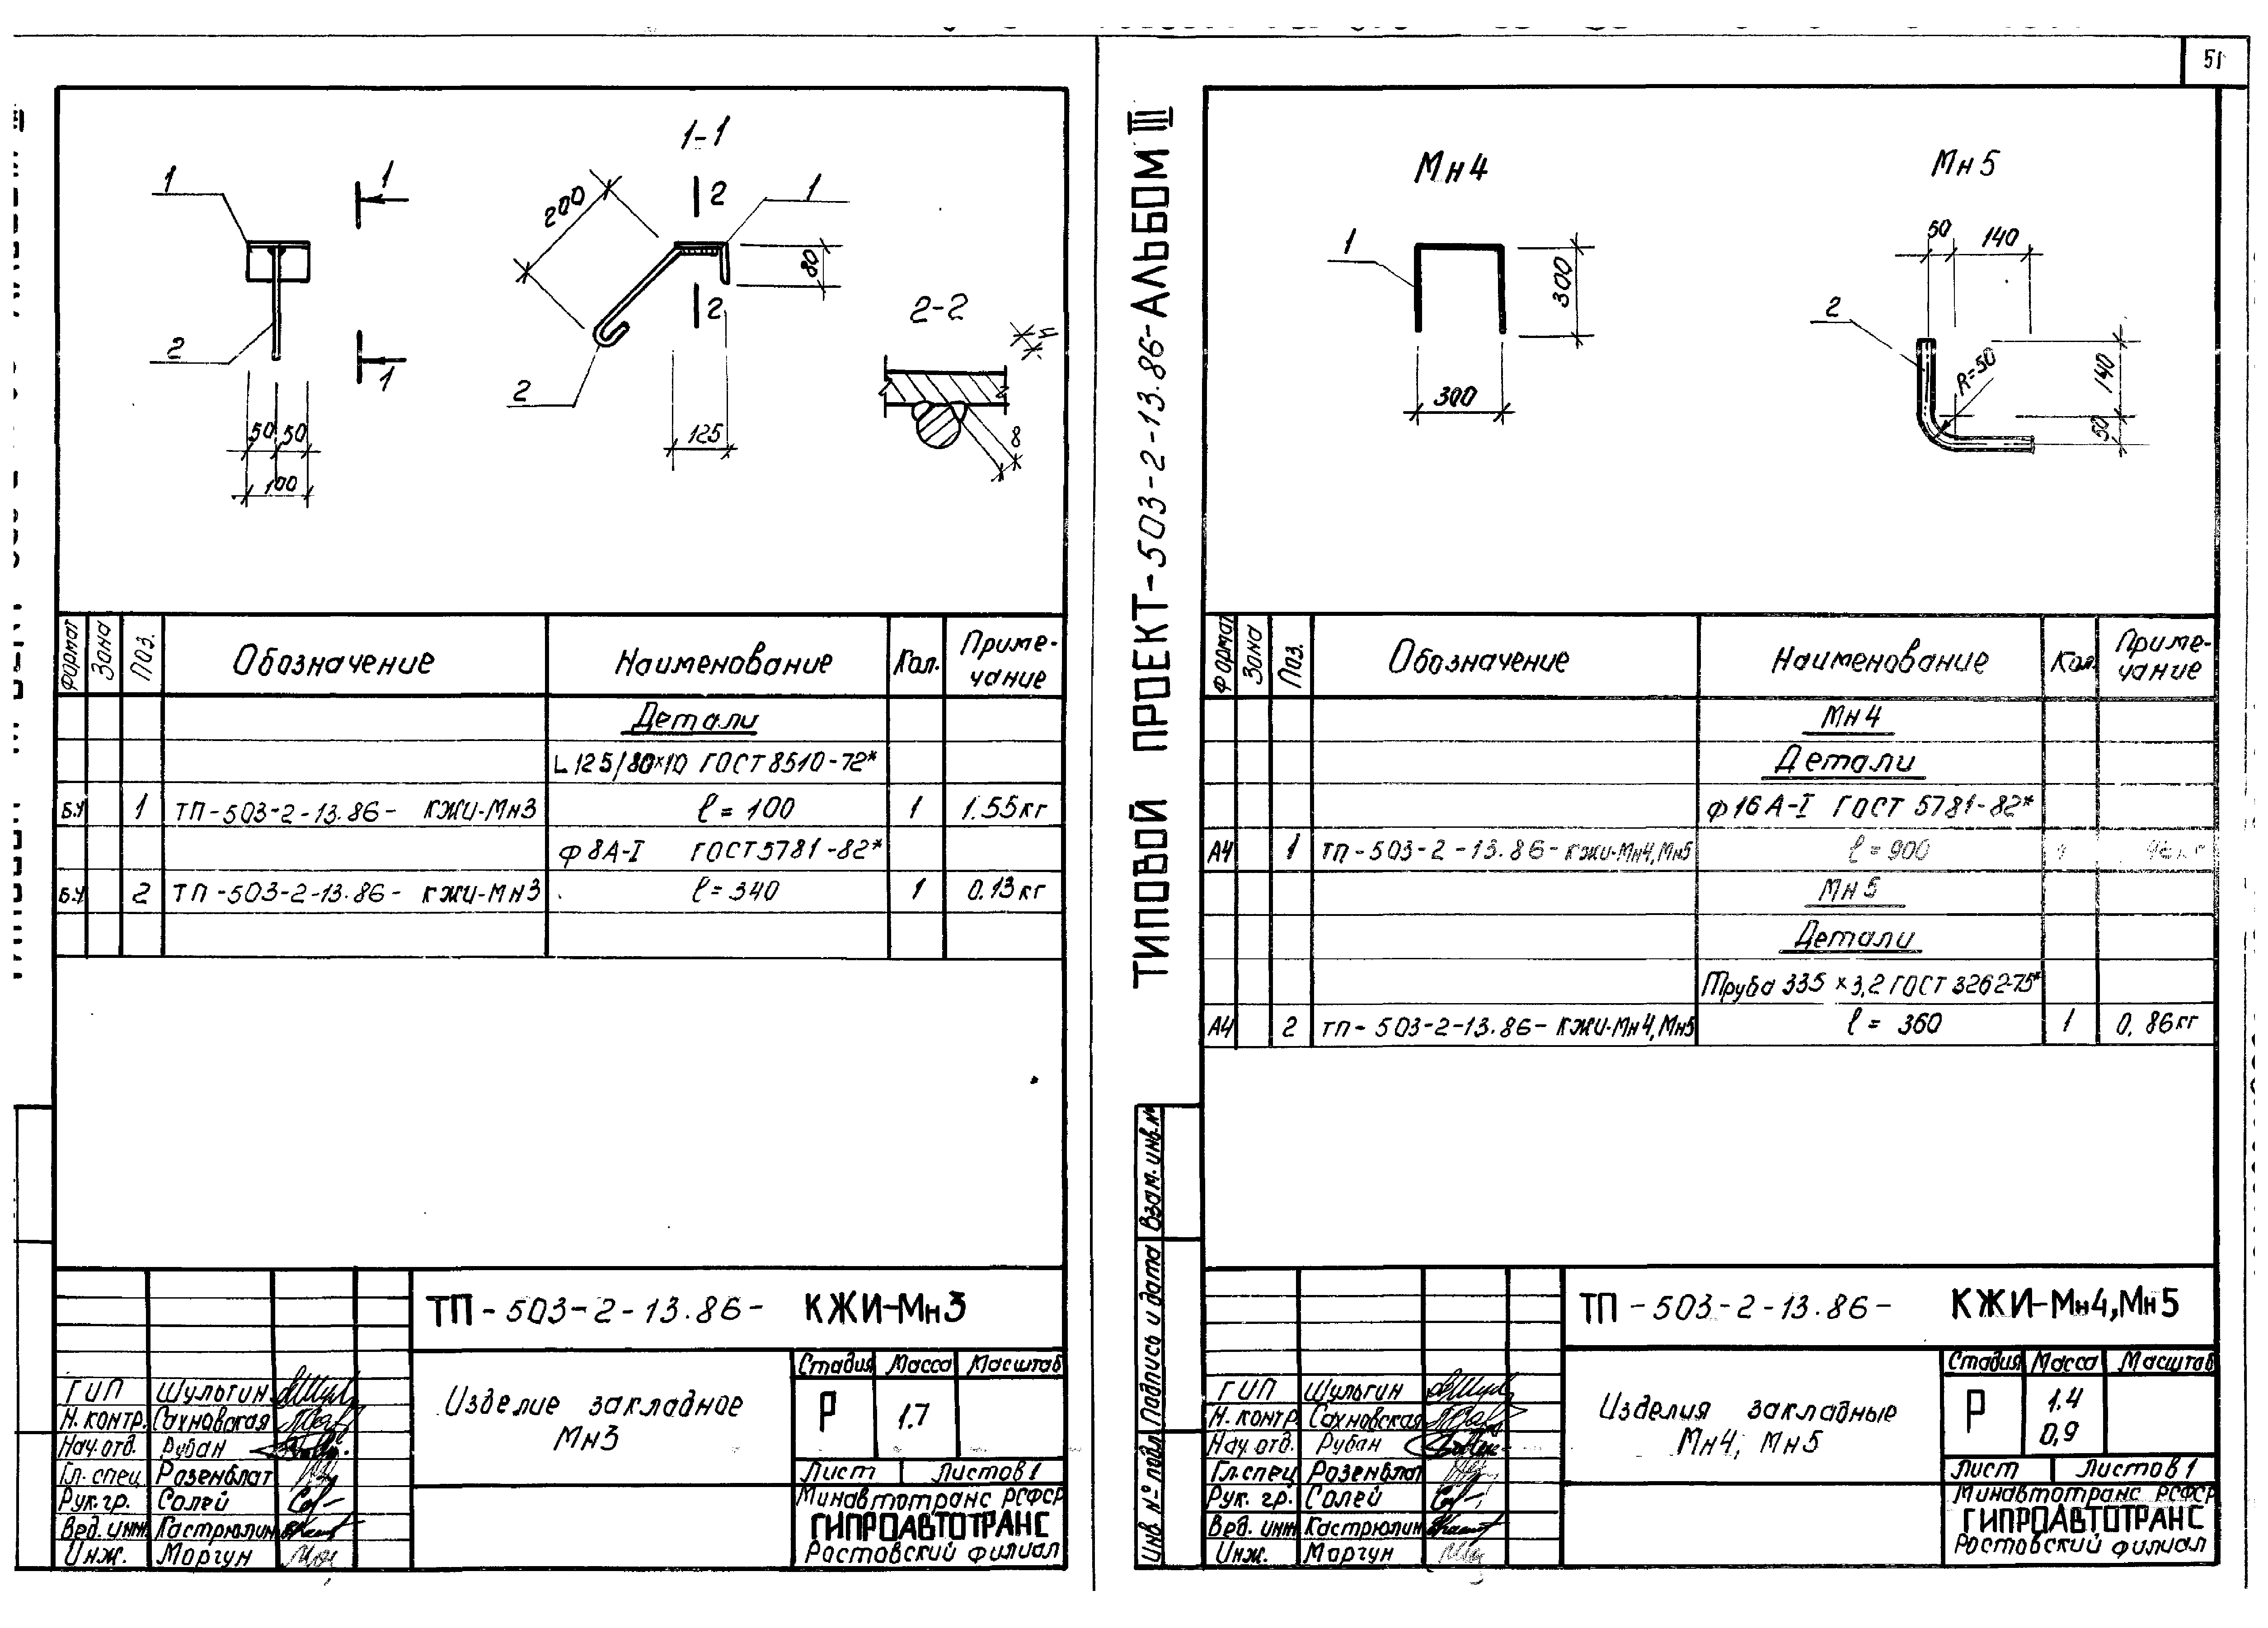 51
1-1
1
1
2
1
50 50
100
200
2
1
80
2
2
125
2-2
4
8
Формат Зона Поз. Обозначение Наименование Кол. Приме-
чание
Детали
L 125/80×10 ГОСТ 8510-72*
Б.Ч 1 ТП-503-2-13.86- КЖИ-Мн3 ℓ=100 1 1.55кг
ф8А-I ГОСТ5781-82*
Б.Ч 2 ТП-503-2-13.86- КЖИ-Мн3 ℓ=340 1 0.13кг
ТП-503-2-13.86- КЖИ-Мн3
Изделие закладное
Мн3
Стадия Масса Масштаб
Р 1.7
Лист Листов 1
Минавтотранс РСФСР
ГИПРОАВТОТРАНС
Ростовский филиал
ГИП Шульгин
Н.контр. Сахновская
Нач.отд. Рубан
Гл.спец Розенблат
Рук.гр. Солей
Вед.инж Кастрюлин
Инж. Моргун
ТИПОВОЙ ПРОЕКТ-503-2-13.86-АЛЬБОМ III
Мн4
1
300
300
Мн5
50 140
2
R=50
140
50
Формат Зона Поз. Обозначение Наименование Кол. Приме-
чание
Мн4
Детали
ф16А-I ГОСТ 5781-82*
А4 1 ТП-503-2-13.86-КЖИ-Мн4,Мн5 ℓ=900
Мн5
Детали
Труба 33.5×3,2 ГОСТ 3262-75*
А4 2 ТП-503-2-13.86-КЖИ-Мн4,Мн5 ℓ=360 1 0.86кг
Взам.инв.№
Подпись и дата
Инв.№ подл.
ТП-503-2-13.86- КЖИ-Мн4,Мн5
Изделия закладные
Мн4, Мн5
Стадия Масса Масштаб
Р 1.4
0,9
Лист Листов 1
Минавтотранс РСФСР
ГИПРОАВТОТРАНС
Ростовский филиал
ГИП Шульгин
Н.контр Сахновская
Нач.отд. Рубан
Гл.спец Розенблат
Рук.гр. Солей
Вед.инж Кастрюлин
Инж. Моргун